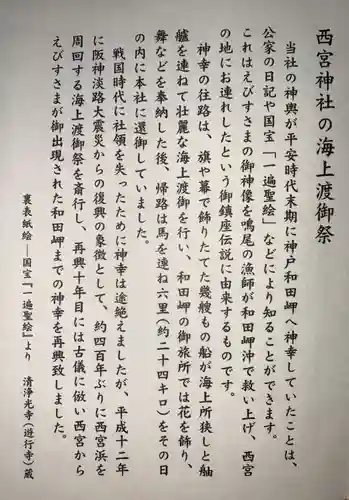 西宮神社の海上渡御祭
当社の神輿が平安時代末期に神戸和田岬へ神幸していたことは、
公家の日記や国宝「一遍聖絵」などにより知ることができます。
これはえびすさまの御神像を鳴尾の漁師が和田岬沖で救い上げ、西宮
の地にお連れしたという御鎮座伝説に由来するものです。
神幸の往路は、旗や幕で飾りたてた幾艘もの船が海上所狭しと舳
艫を連ねて壮麗な海上渡御を行い、和田岬の御旅所では花を飾り、
舞などを奉納した後、帰路は馬を連ね六里（約二十四キロ）をその日
の内に本社に還御していました。
戦国時代に社領を失ったために神幸は途絶えましたが、平成十二年
に阪神淡路大震災からの復興の象徴として、約四百年ぶりに西宮浜を
周回する海上渡御祭を斎行し、再興十年目には古儀に倣い西宮から
えびすさまが御出現された和田岬までの神幸を再興致しました。
裏表紙絵―国宝『一遍聖絵』より　清浄光寺（遊行寺）蔵